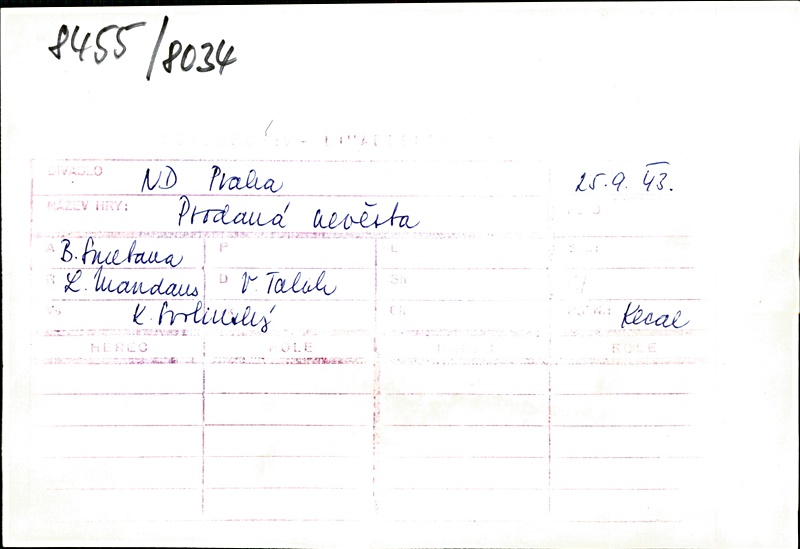 8455/8034
DIVADLO ND Praha 25.9.43.
NÁZEV HRY: Prodaná nevěsta
A B. Smetana P L
R L. Mandaus D V. Talich SH
K. Svolinský Kecal
HEREC ROLE ROLE